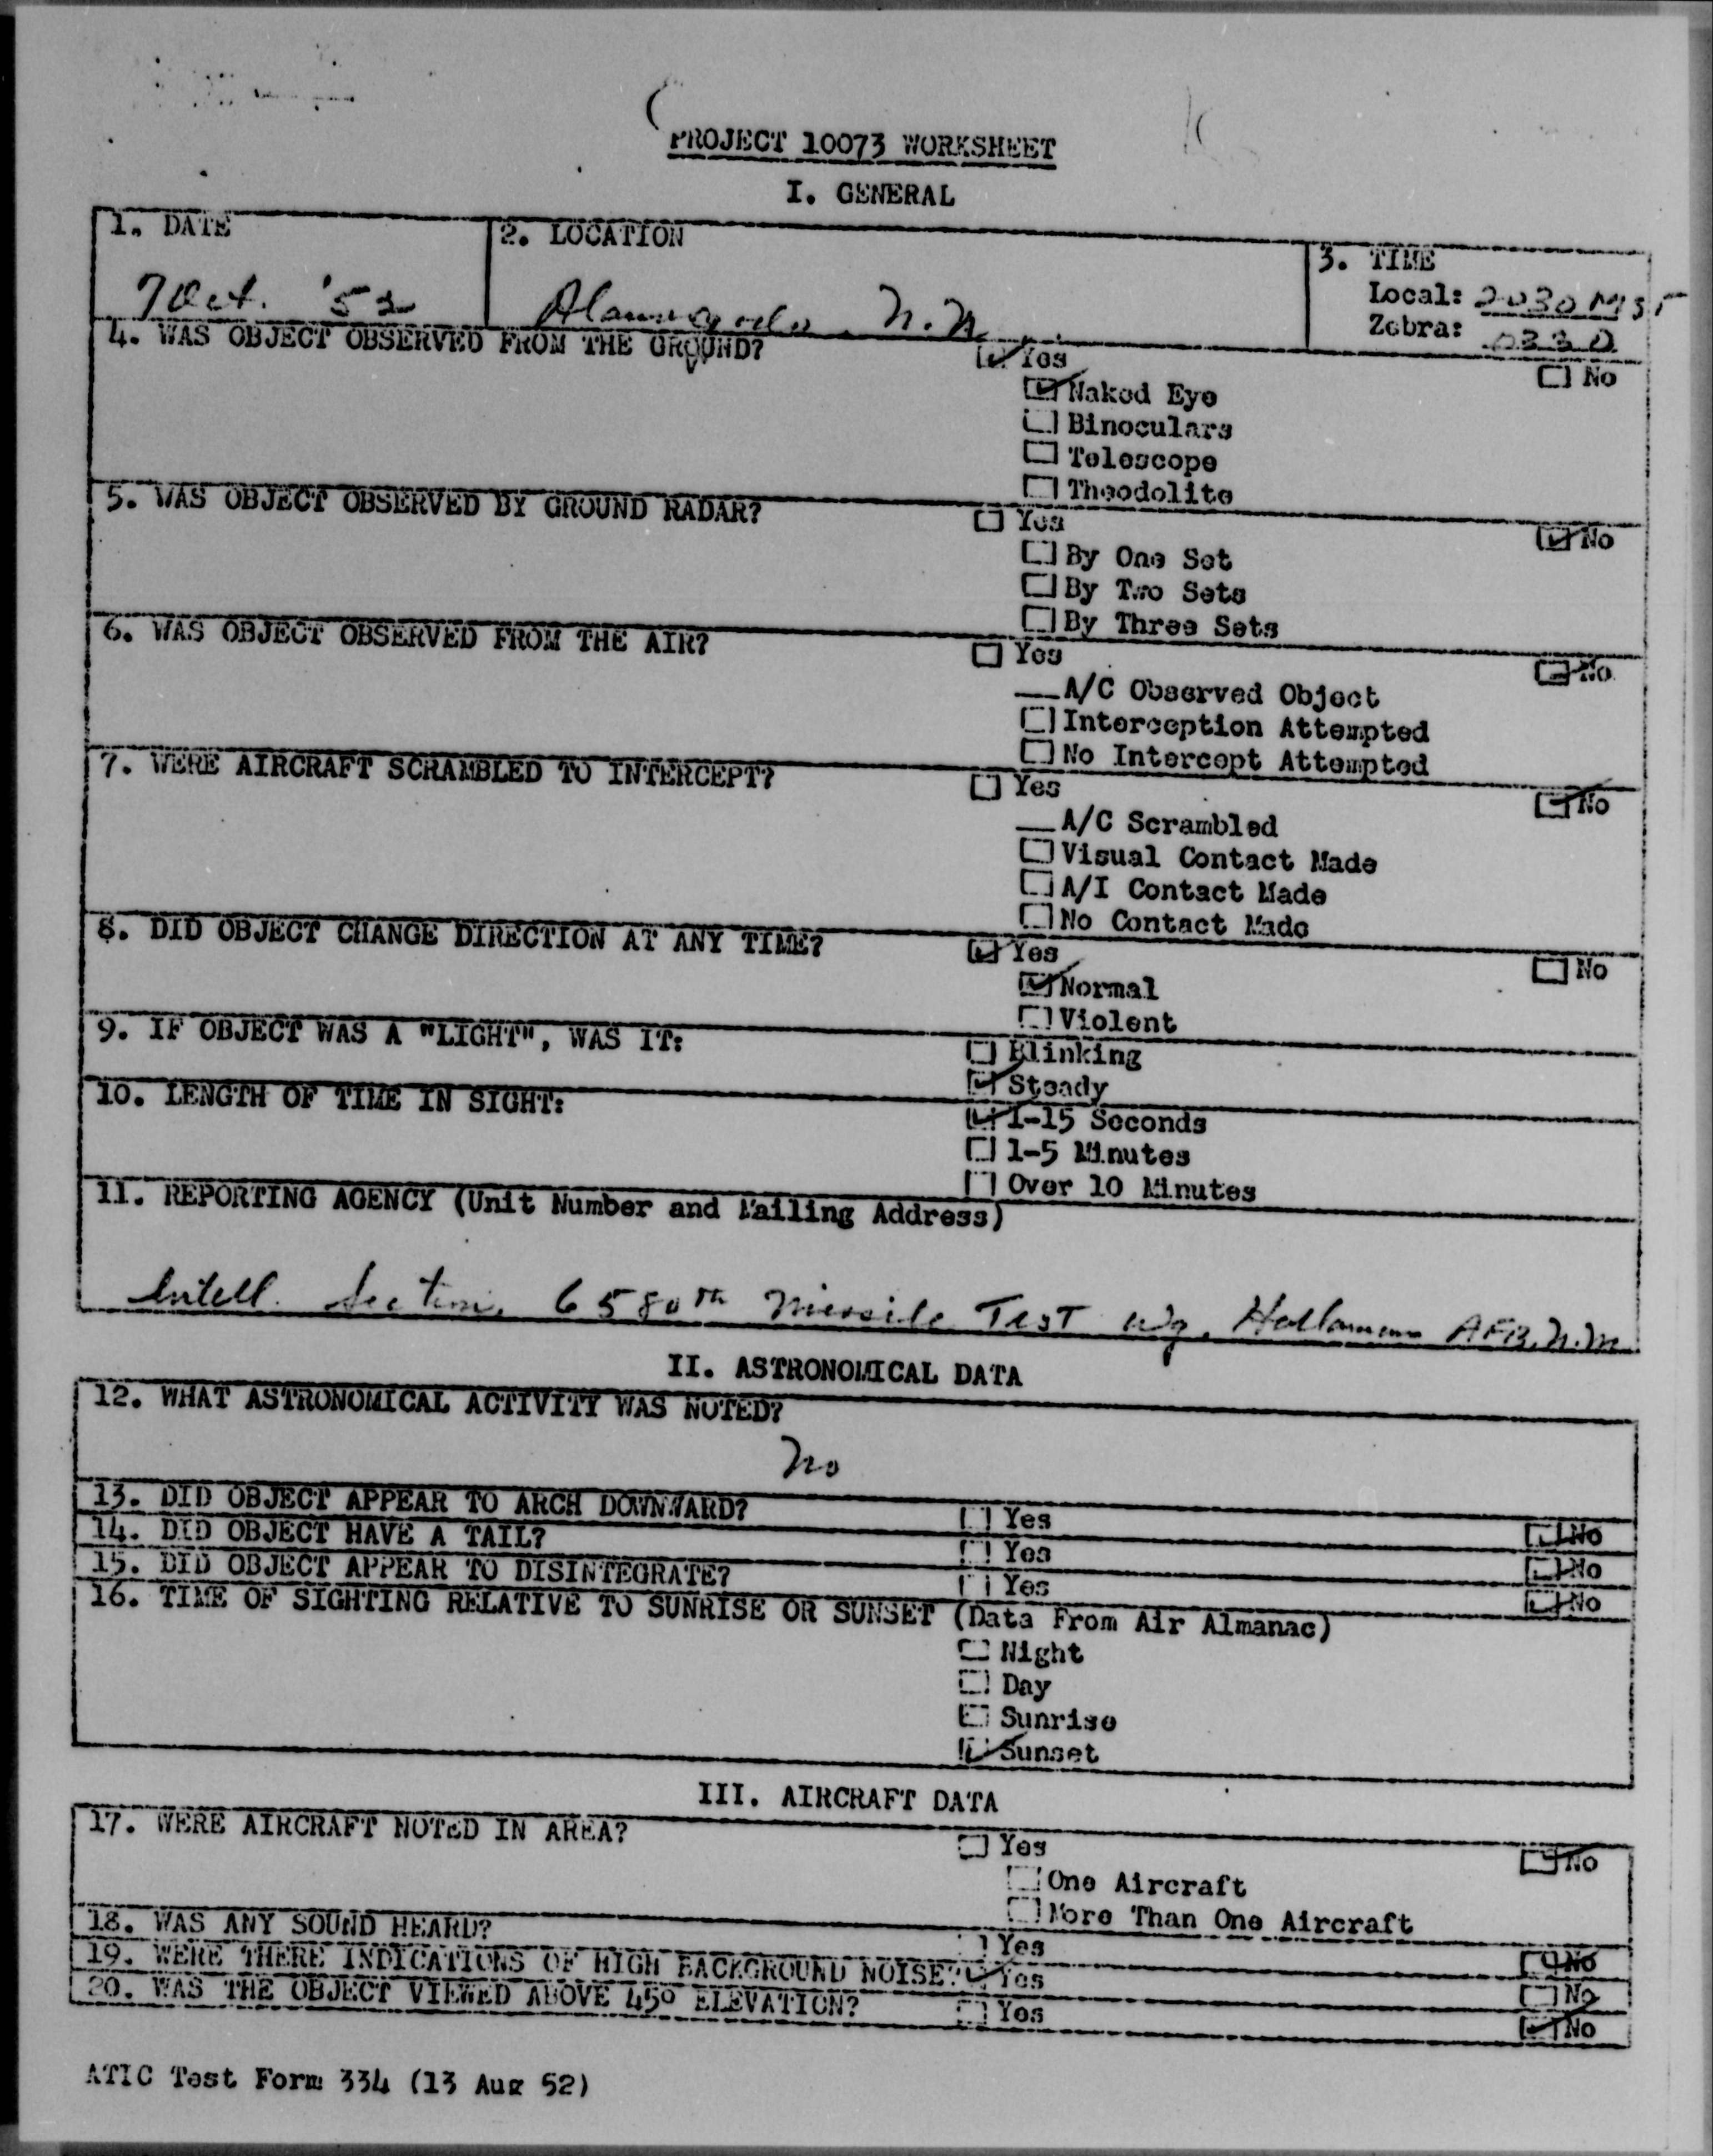 PROJECT 10073 WORKSHEET
I. GENERAL
1. DATE
7 Oct. '52
2. LOCATION
Alamogordo, N.M.
3. TIME
Local: 2030 MST
Zebra: 0330
4. WAS OBJECT OBSERVED FROM THE GROUND?
☑ Yes ☐ No
☑ Naked Eye
☐ Binoculars
☐ Telescope
☐ Theodolite
5. WAS OBJECT OBSERVED BY GROUND RADAR?
☐ Yes ☑ No
☐ By One Set
☐ By Two Sets
☐ By Three Sets
6. WAS OBJECT OBSERVED FROM THE AIR?
☐ Yes ☑ No
__ A/C Observed Object
☐ Interception Attempted
☐ No Intercept Attempted
7. WERE AIRCRAFT SCRAMBLED TO INTERCEPT?
☐ Yes ☑ No
__ A/C Scrambled
☐ Visual Contact Made
☐ A/I Contact Made
☐ No Contact Made
8. DID OBJECT CHANGE DIRECTION AT ANY TIME?
☑ Yes ☐ No
☑ Normal
☐ Violent
9. IF OBJECT WAS A "LIGHT", WAS IT:
☐ Blinking
☑ Steady
10. LENGTH OF TIME IN SIGHT:
☑ 1-15 Seconds
☐ 1-5 Minutes
☐ Over 10 Minutes
11. REPORTING AGENCY (Unit Number and Mailing Address)
Intell. Section, 6580th Missile Test Wg, Holloman AFB, N.M.
II. ASTRONOMICAL DATA
12. WHAT ASTRONOMICAL ACTIVITY WAS NOTED?
No
13. DID OBJECT APPEAR TO ARCH DOWNWARD? ☐ Yes ☑ No
14. DID OBJECT HAVE A TAIL? ☐ Yes ☑ No
15. DID OBJECT APPEAR TO DISINTEGRATE? ☐ Yes ☑ No
16. TIME OF SIGHTING RELATIVE TO SUNRISE OR SUNSET (Data From Air Almanac)
☐ Night
☐ Day
☐ Sunrise
☑ Sunset
III. AIRCRAFT DATA
17. WERE AIRCRAFT NOTED IN AREA?
☐ Yes ☑ No
☐ One Aircraft
☐ More Than One Aircraft
18. WAS ANY SOUND HEARD? ☐ Yes ☑ No
19. WERE THERE INDICATIONS OF HIGH BACKGROUND NOISE? ☑ Yes ☐ No
20. WAS THE OBJECT VIEWED ABOVE 45° ELEVATION? ☐ Yes ☑ No
ATIC Test Form 334 (13 Aug 52)